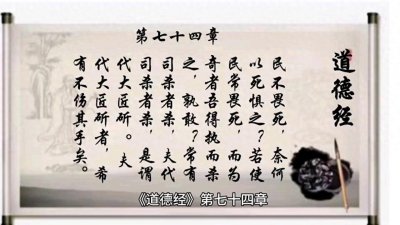 第七十四章
道德经
民不畏死，奈何
以死惧之？若使
民常畏死，而为
奇者吾得执而杀
之，孰敢？常有
司杀者杀，夫代
司杀者杀，是谓
代大匠斫。夫
代大匠斫者，希
有不伤其手矣。
《道德经》第七十四章